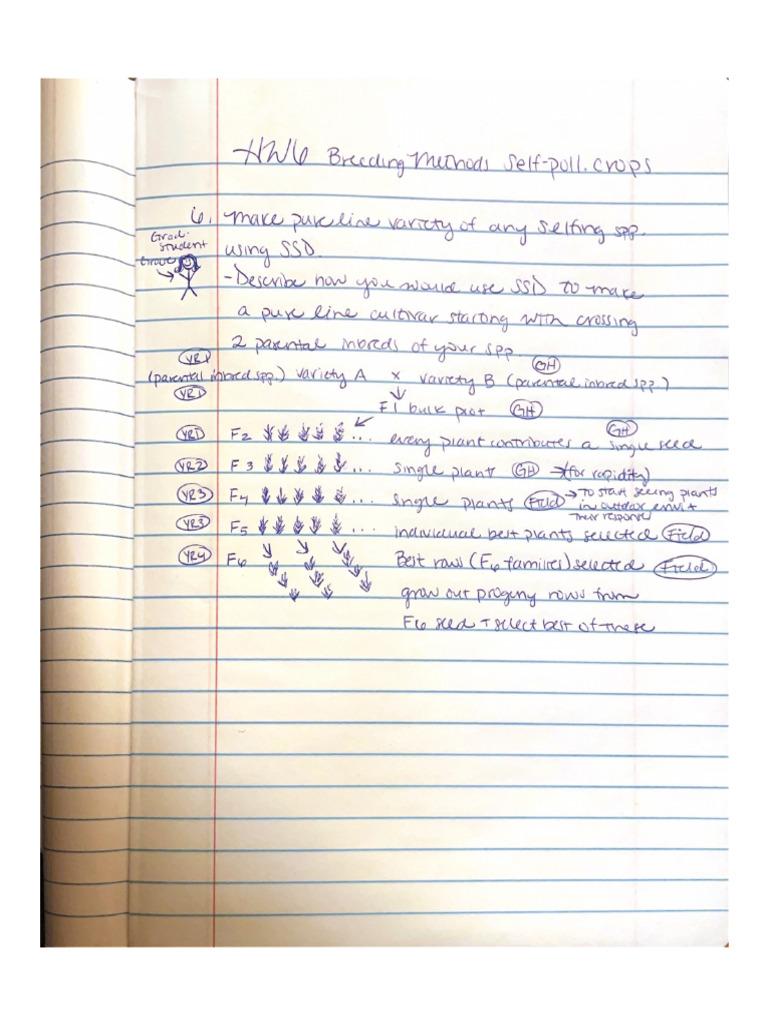 HW6 Breeding Methods Self-poll. crops
6. make pure line variety of any selfing spp.
Grad.
student
using SSD.
- Describe how you would use SSD to make
a pure line cultivar starting with crossing
2 parental inbreds of your spp.
YR1 GH
(parental inbred spp.) variety A x variety B (parental inbred spp.)
YR1
F1 bulk plot GH
GH
YR1 F2 ... every plant contributes a single seed
YR2 F3 ... single plants GH → (for rapidity)
YR3 F4 ... single plants Field → To start seeing plants
in outdoor envi +
their response
YR3 F5 ... individual best plants selected Field
YR4 F6 Best rows (F6 families) selected Field
grow out progeny rows from
F6 seed + select best of these